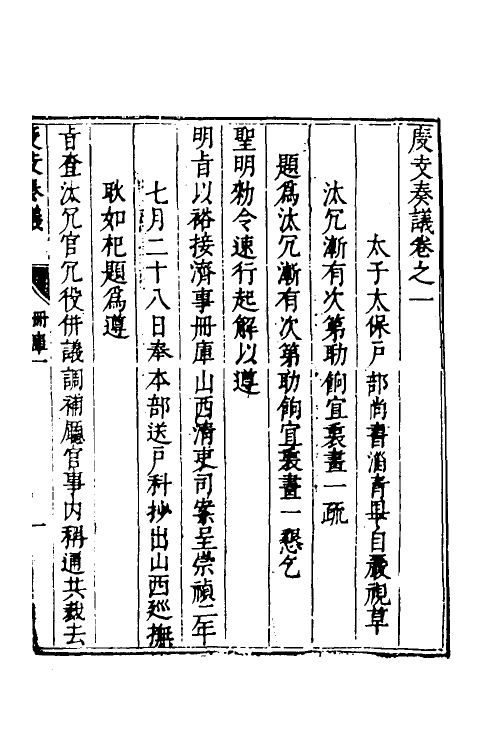 度支奏議卷之一
太子太保戶部尚書淄青畢自嚴視草
汰冗漸有次第助餉宜裒畫一疏
題爲汰冗漸有次第助餉宜裒畫一懇乞
聖明勑令速行起解以遵
明旨以裕接濟事冊庫山西清吏司案呈崇禎二年
七月二十八日奉本部送戶科抄出山西廵撫
耿如杞題爲遵
旨查汰冗官冗役併議調補廳官事内稱通共裁去
度支奏議
冊庫一
一